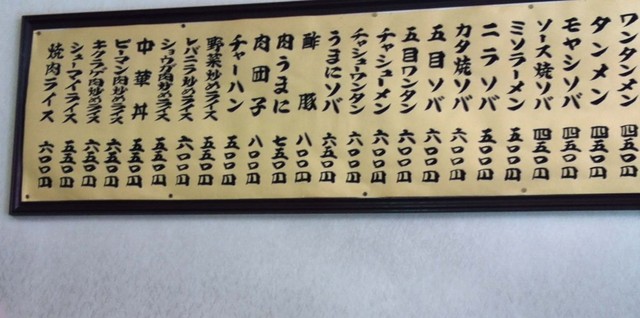 ワンタンメン 四五〇円
タンメン 四五〇円
モヤシソバ 四五〇円
ソース焼ソバ 四五〇円
ミソラーメン 五〇〇円
ニラソバ 五〇〇円
カタ焼ソバ 六〇〇円
五目ソバ 六〇〇円
五目ワンタン 六〇〇円
チャシューメン 六〇〇円
チャシューワンタン 六〇〇円
うまにソバ 六五〇円
酢豚 八〇〇円
肉うまに 七五〇円
肉団子 八〇〇円
チャーハン 五〇〇円
野菜炒めライス 五五〇円
レバニラ炒めライス 六〇〇円
ショウガ肉炒めライス 五五〇円
中華丼 五五〇円
ピーマン肉炒めライス 六五〇円
キクラゲ肉炒めライス 六五〇円
シューマイライス 五五〇円
焼肉ライス 六〇〇円